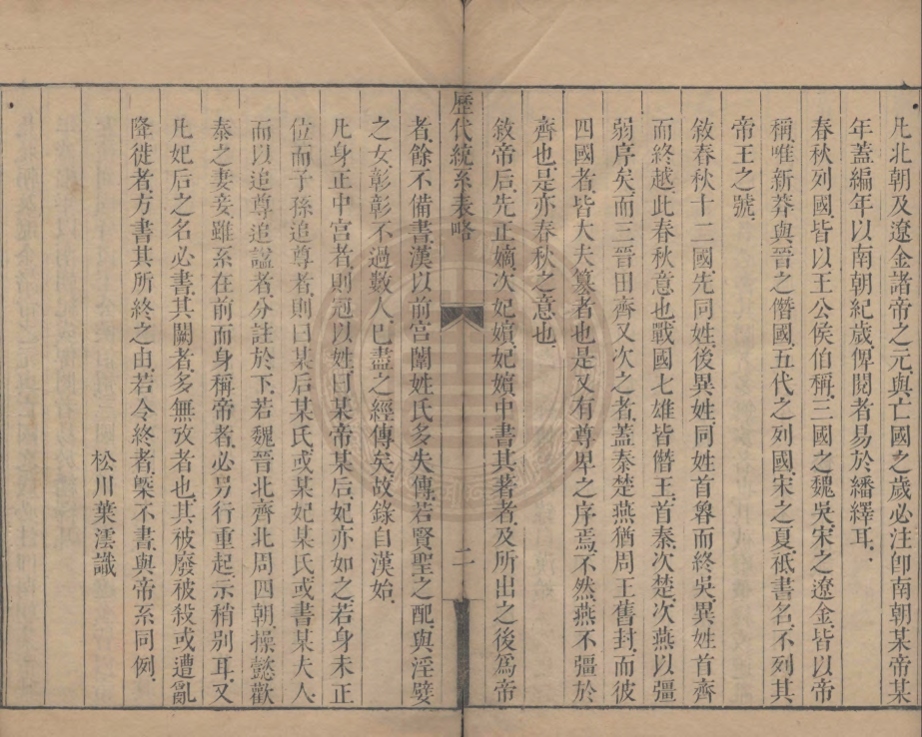 凡北朝及遼金諸帝之元與亡國之歲必注卽南朝某帝某
年蓋編年以南朝紀歲俾閱者易於繙繹耳
春秋列國皆以王公侯伯稱三國之魏吳宋之遼金皆以帝
稱唯新莽與晉之僭國五代之列國宋之夏袛書名不列其
帝王之號
敘春秋十二國先同姓後異姓同姓首魯而終吳異姓首齊
而終越此春秋意也戰國七雄皆僭王首秦次楚次燕以彊
弱序矣而三晉田齊又次之者蓋秦楚燕猶周王舊封而彼
四國者皆大夫篡者也是又有尊卑之序焉不然燕不彊於
齊也是亦春秋之意也
敘帝后先正嫡次妃嬪妃嬪中書其著者及所出之後爲帝
歷代統系表略
二
者餘不備書漢以前宮闈姓氏多失傳若賢聖之配與淫嬖
之女彰彰不過數人已盡之經傳矣故錄自漢始
凡身正中宮者則冠以姓曰某帝某后妃亦如之若身未正
位而子孫追尊者則曰某后某氏或某妃某氏或書某夫人
而以追尊追諡者分註於下若魏晉北齊北周四朝操懿歡
泰之妻妾雖系在前而身稱帝者必另行重起示稍別耳又
凡妃后之名必書其闕者多無攷者也其被廢被殺或遭亂
降徙者方書其所終之由若令終者槩不書與帝系同例
松川葉澐識